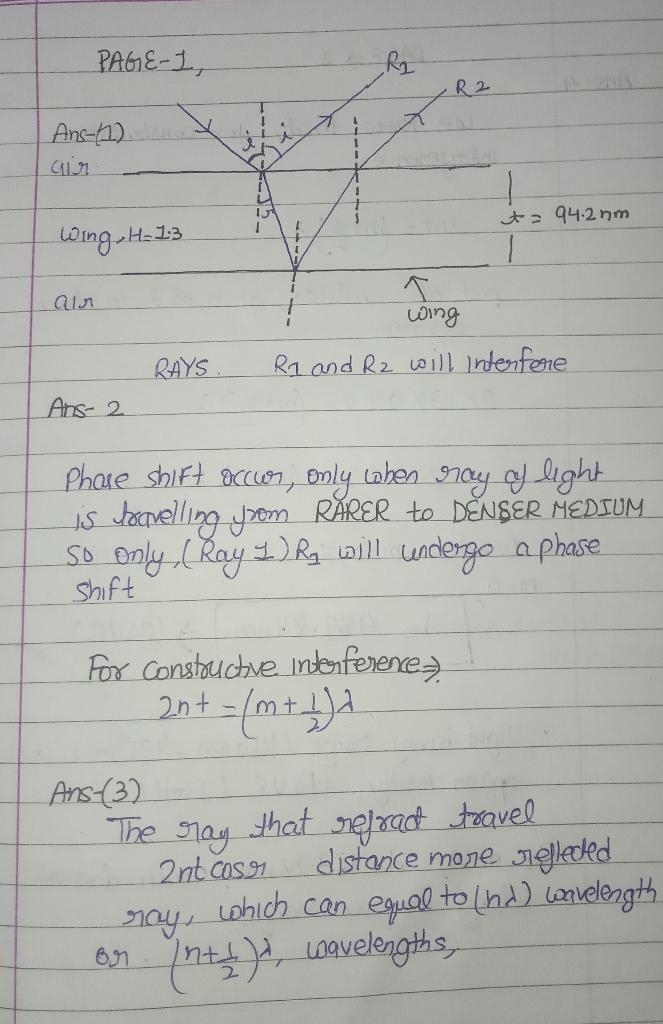 PAGE-1,
R1
R2
Ans-(1)
i i
air
r
t = 94.2 nm
wing, H=1.3
air
wing
RAYS. R1 and R2 will interfere
Ans- 2
Phase shift occur, only when ray of light
is travelling from RARER to DENSER MEDIUM
so only, (Ray 1) R1 will undergo a phase
shift
For constructive interference⇒
2nt = (m + 1/2)λ
Ans-(3)
The ray that refract travel
2nt cosr distance more reflected
ray, which can equal to (nλ) wavelength
or (n+1/2)λ, wavelengths,